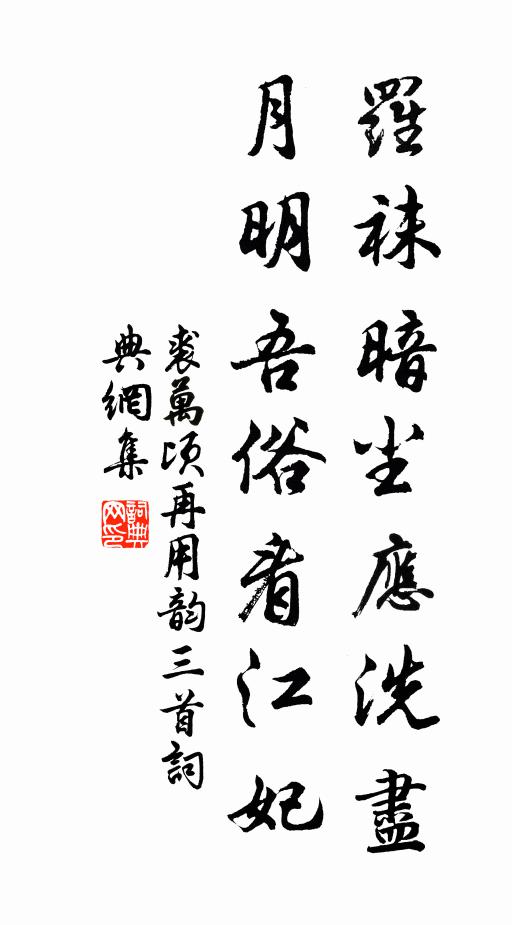 羅袜暗尘應洗盡
月明吾俗看江妃
裘萬頃再用韵三首詞
典網集
詞典網印